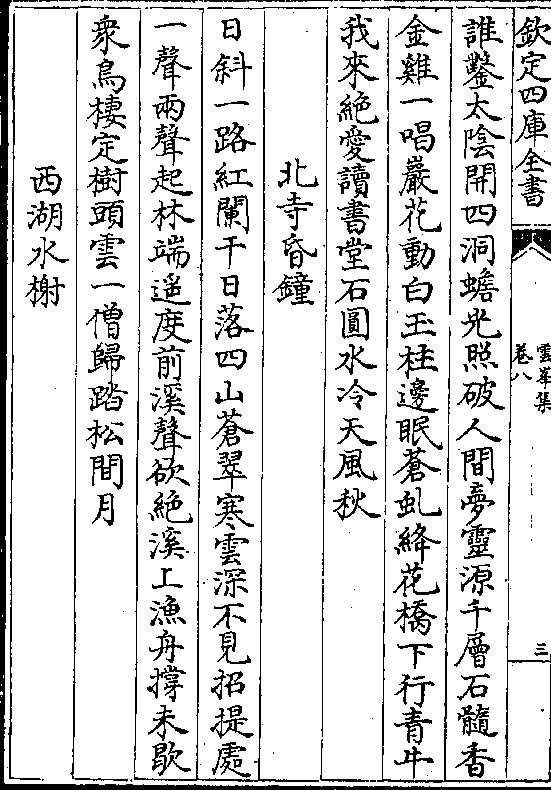 欽定四庫全書
雲峯集
卷八
三
誰鑿太陰開四洞蟾光照破人間夢靈源千層石髓香
金雞一唱巖花動白玉柱邊眠蒼虬絳花橋下行青牛
我來絶愛讀書堂石圓水冷天風秋
北寺昏鐘
日斜一路紅闌干日落四山蒼翠寒雲深不見招提處
一聲兩聲起林端遥度前溪聲欲絶溪上漁舟撐未歇
衆鳥棲定樹頭雲一僧歸踏松間月
西湖水榭